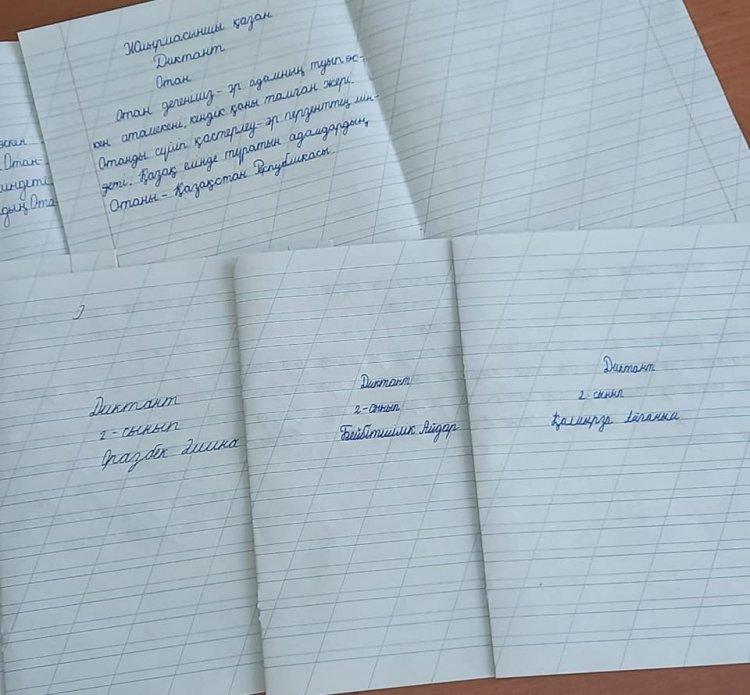 Жиырмасыншы қазан
Диктант
Отан
Отан дегеніміз - әр адамның туып өс-
кен атамекені, кіндік қаны тамған жері.
Отанды сүйіп қастерлеу - әр перзенттің мін-
деті. Қазақ елінде тұратын адамдардың
Отаны - Қазақстан Республикасы.
өскен
Отан-
індеті.
дың Ота
Диктант
2-сынып
Оразбек Әмина
Диктант
2-сынып
Бейбітшілік Айдар
Диктант
2-сынып
Қалмырза